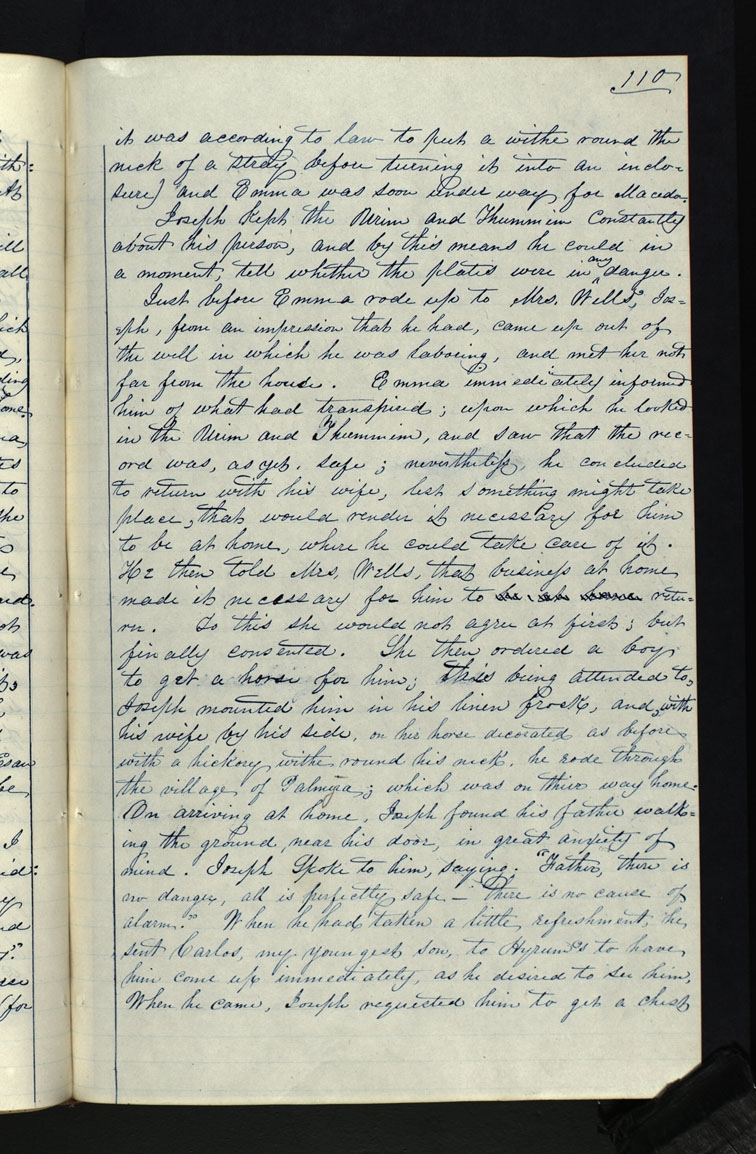 110
it was according to law to put a withe round the
neck of a stray before turning it into an inclo-
sure) and Emma was soon under way for Macedo-
Joseph kept the Urim and Thummim constantly
about his person, and by this means he could in
a moment, tell whether the plates were in any danger.
Just before Emma rode up to Mrs. Wells', Jos=
eph, from an impression that he had, came up out of
the well in which he was laboring, and met her not
far from the house. Emma immediately informed
him of what had transpired; upon which he looked
in the Urim and Thummim, and saw that the rec=
ord was, as yet, safe; nevertheless, he concluded
to return with his wife, lest something might take
place, that would render it necessary for him
to be at home, where he could take care of it.
He then told Mrs. Wells, that business at home
made it necessary for him to retu=
rn. To this she would not agree at first; but
finally consented. She then ordered a boy
to get a horse for him; this being attended to,
Joseph mounted him in his linen frock, and, with
his wife by his side, on her horse decorated as before
with a hickory withe round his neck, he rode through
the village of Palmyra; which was on thier way home.
On arriving at home, Joseph found his father walk=
ing the ground, near his door, in great anxiety of
mind. Joseph spoke to him, saying; "Father, there is
no danger, all is perfectly safe — there is no cause of
alarm." When he had taken a little refreshment, he
sent Carlos, my youngest son, to Hyrum's to have
him come up immediately, as he desired to see him.
When he came, Joseph requested him to get a chest